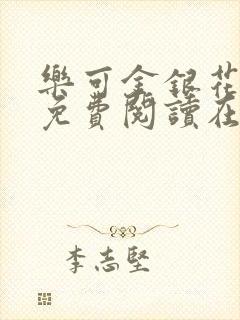 樂可金銀花
免費閱讀在
李志堅